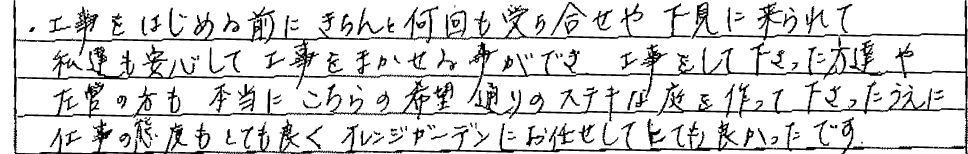 ・工事をはじめる前にきちんと何回も受ち合せや下見に来られて
私達も安心して工事をまかせる事ができ 工事をして下さった方達や
左官の方も 本当にこちらの希望通りのステキな庭を作って下さったうえに
仕事の態度もとても良く オレンジガーデンにお任せしてとても良かったです。